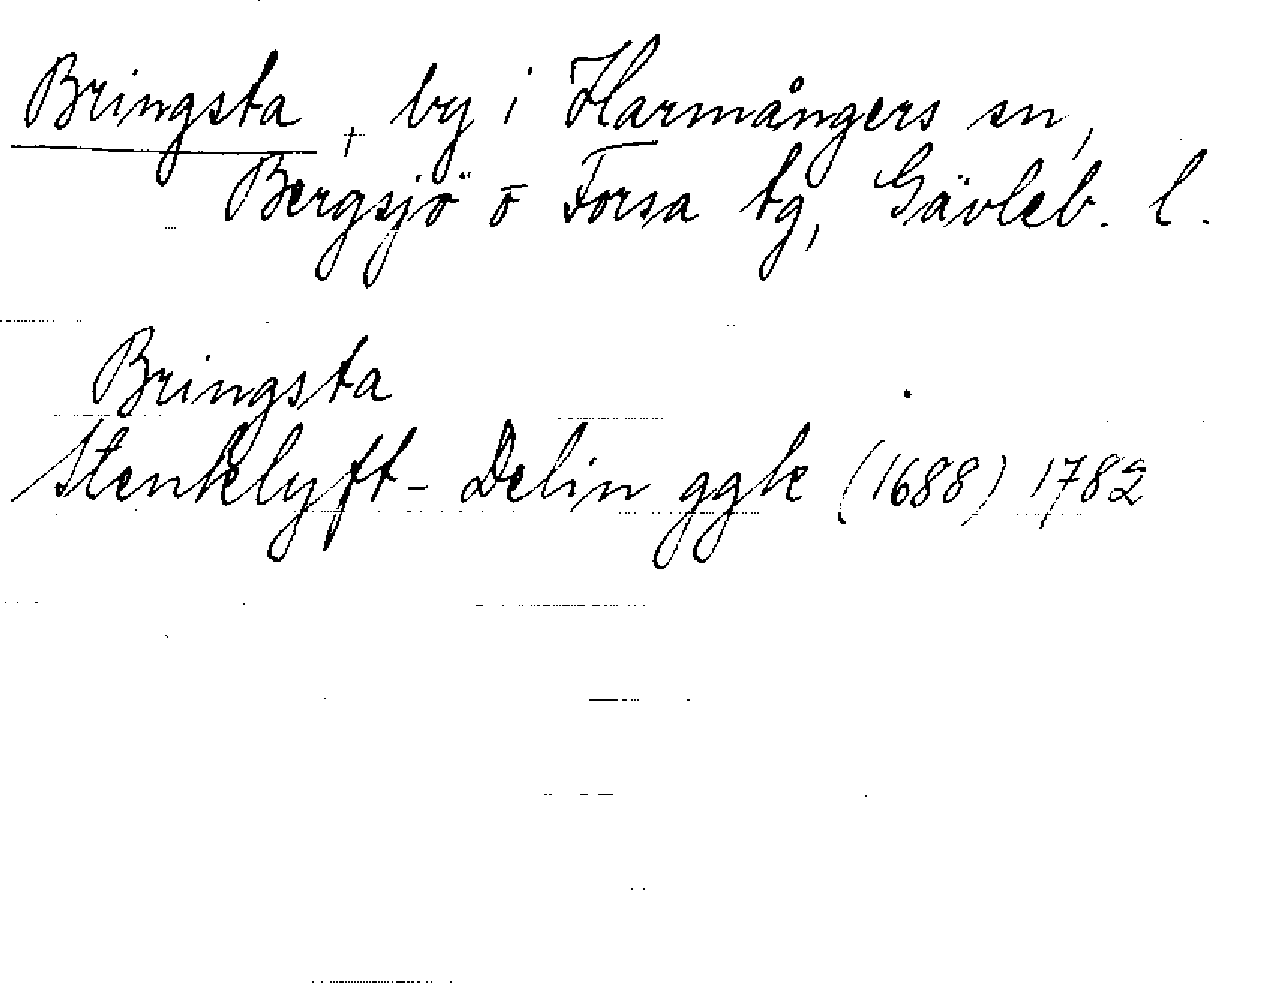 Bringsta, by i Harmångers sn,
Bergsjö o Forsa tg, Gävleb. l.
Bringsta
Stenklyft - Delin ggk (1688) 1782